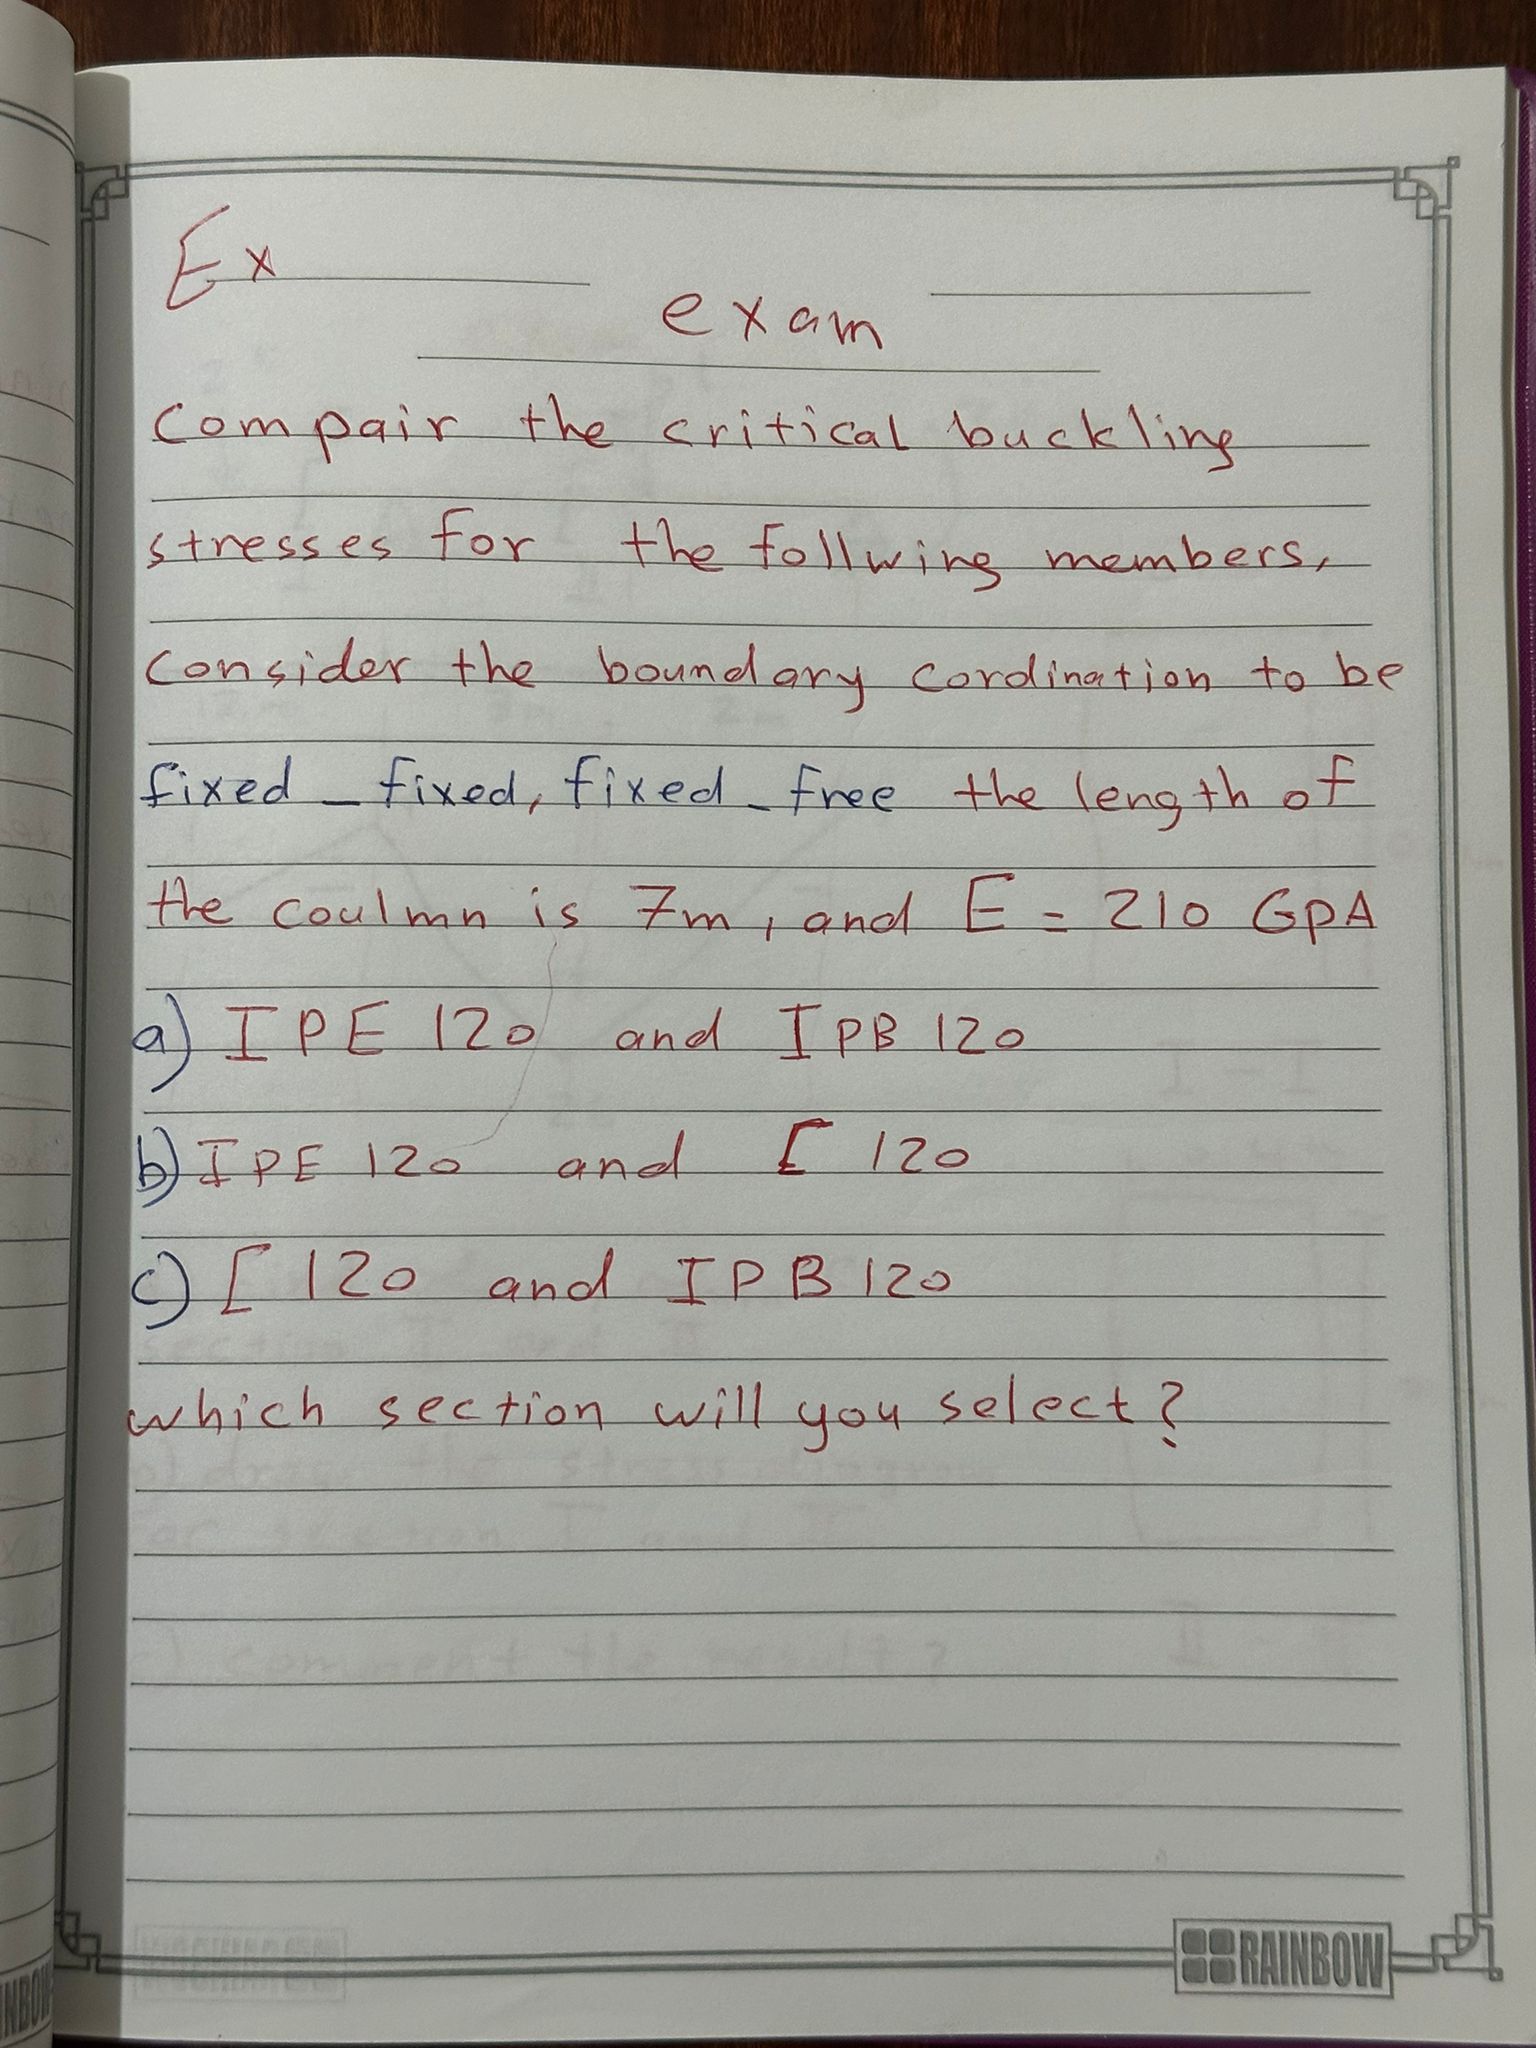 Ex
exam
compair the critical buckling
stresses for the follwing members,
consider the boundary cordination to be
fixed _ fixed, fixed _ free the length of
the coulmn is 7m, and E = 210 GPA
a) IPE 120 and IPB 120
b) IPE 120 and [ 120
c) [ 120 and IPB 120
which section will you select?
RAINBOW